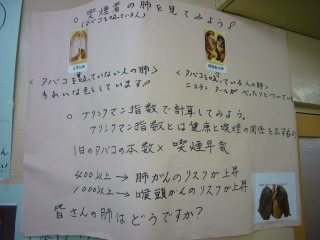 ○ 喫煙者の肺を見てみよう!
(タバコを吸っている人)
<タバコを吸っていない人の肺>
きれいな色をしています!!
<タバコを吸っている人の肺>
ニコチン、タールがべったりとついている
○ ブリンクマン指数で計算してみよう。
ブリンクマン指数とは健康と喫煙の関係を示す
1日のタバコの本数 × 喫煙年数
400以上 → 肺がんのリスクが上昇
1000以上 → 喉頭がんのリスクが上昇
皆さんの肺はどうですか?